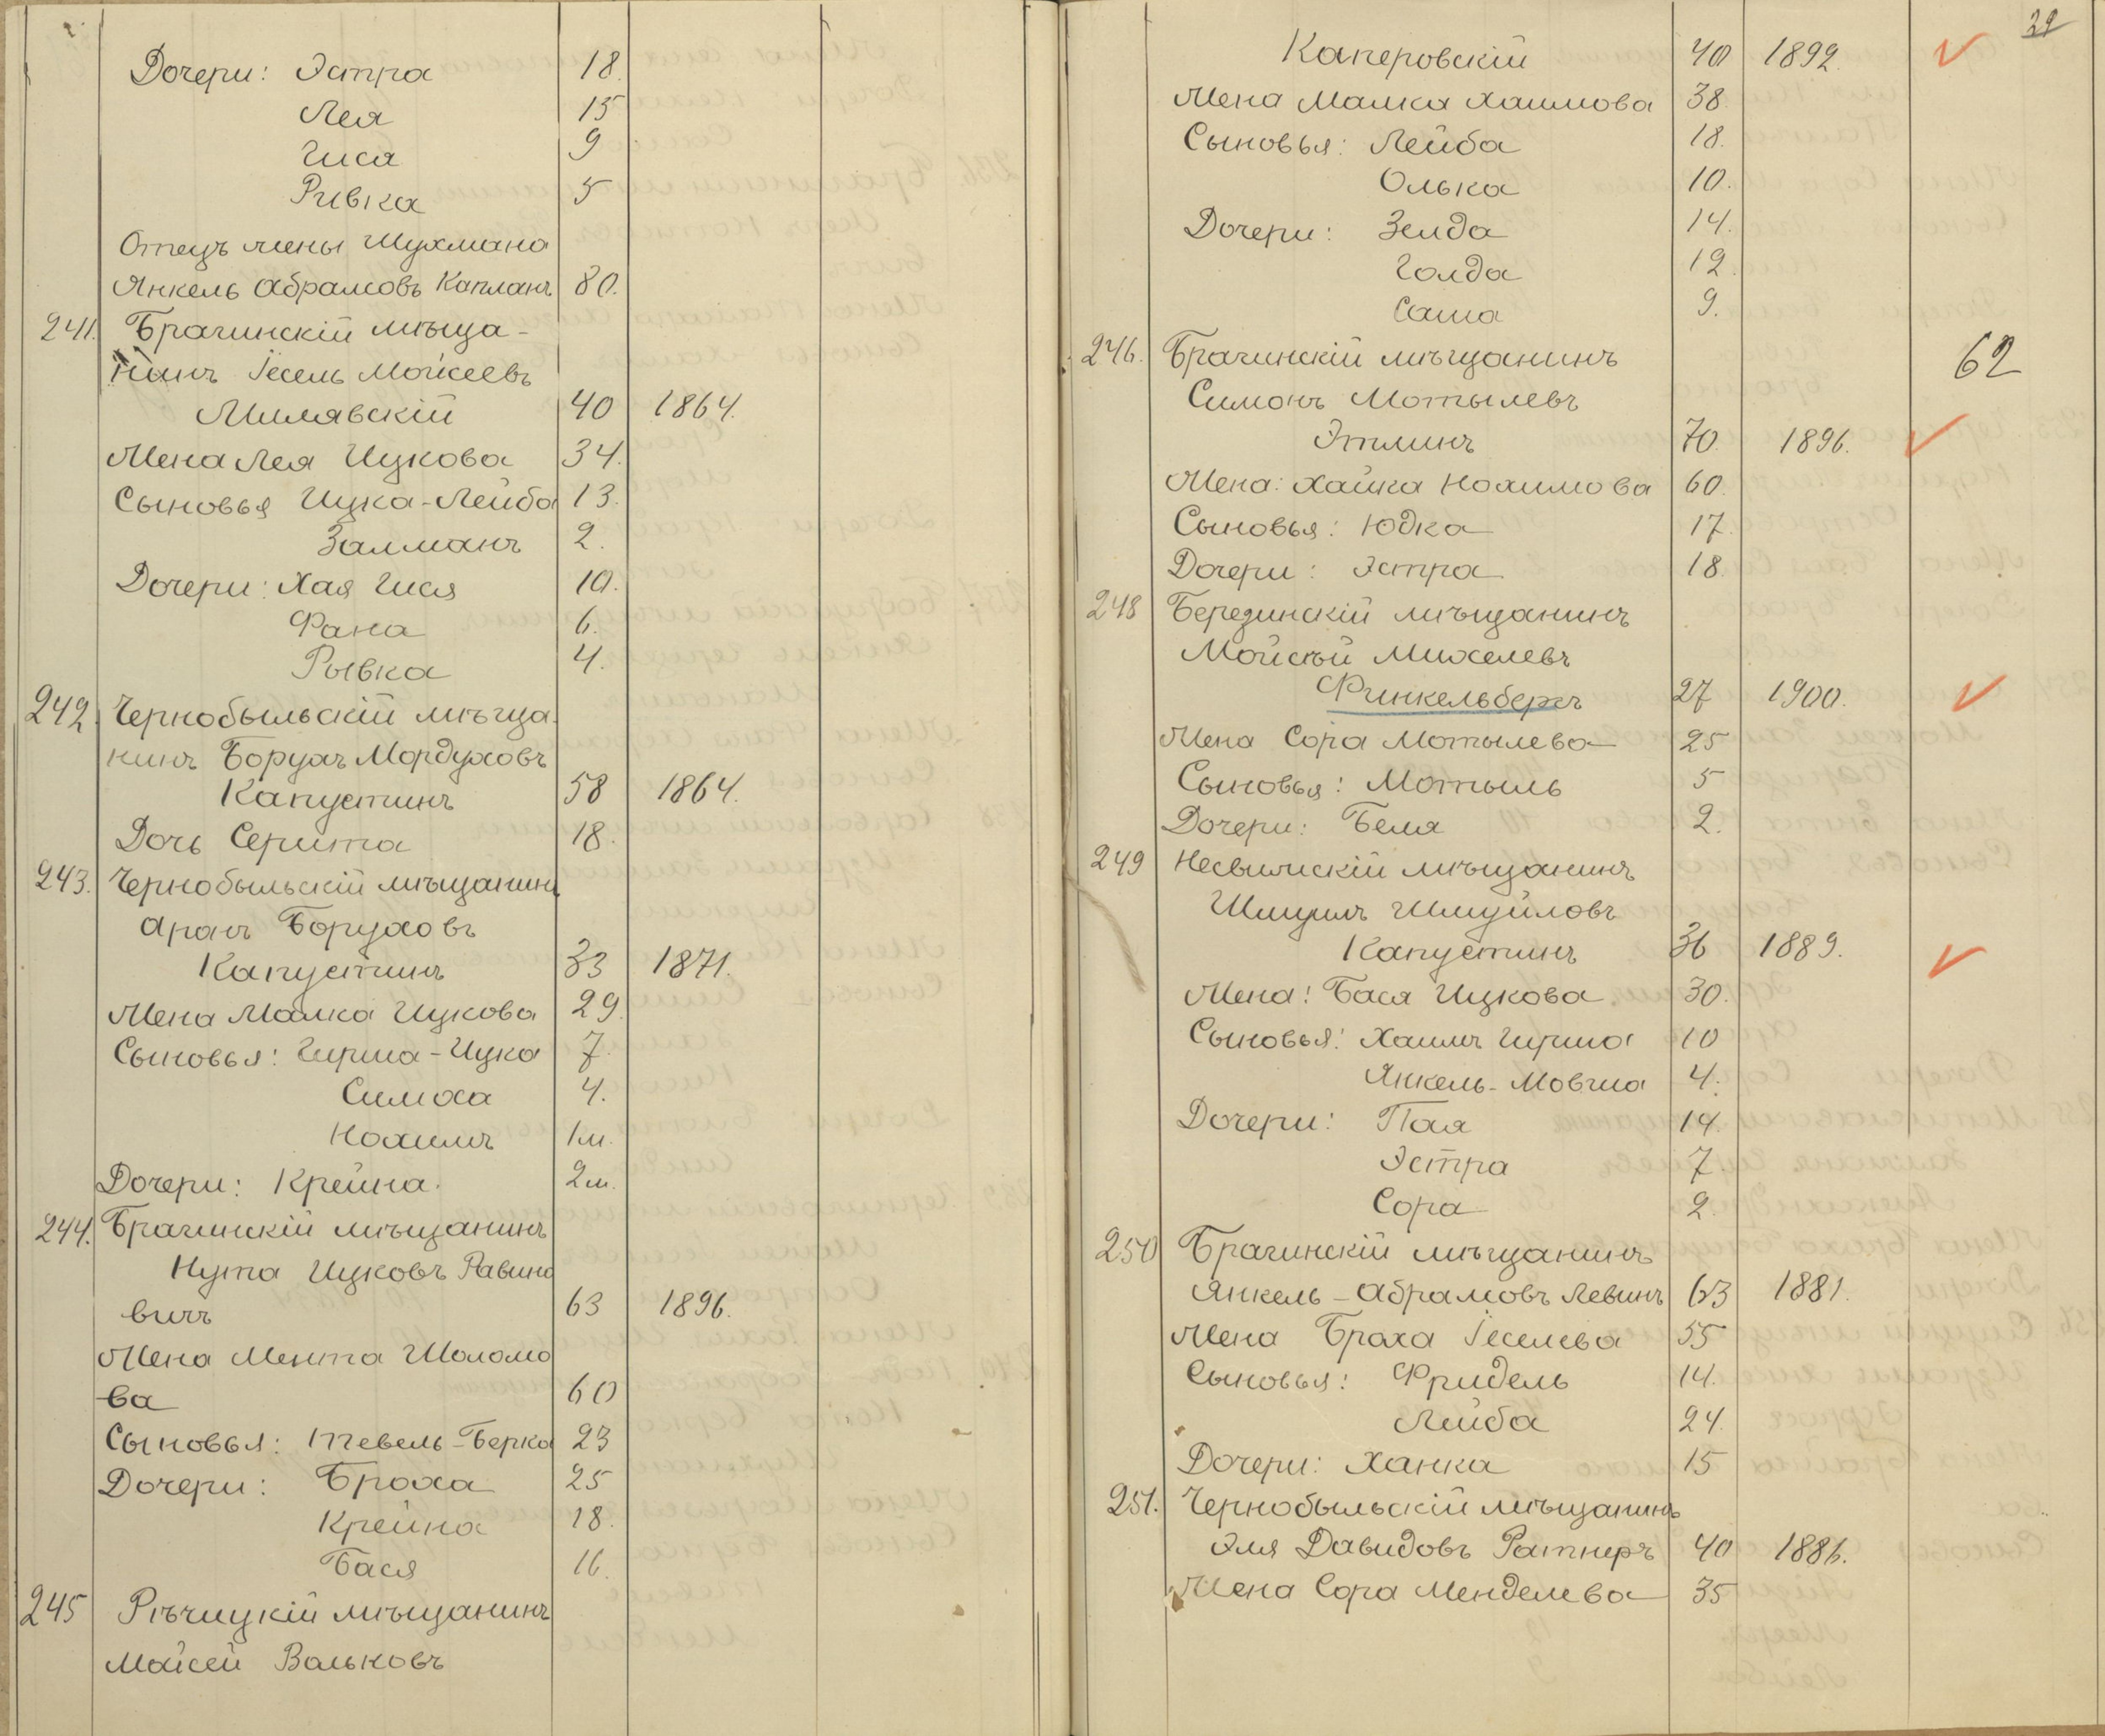 Дочери: Эстра 18.
Лея 15
Гися 9
Ривка 5
Отецъ жены Шухмана
Янкель Абрамовъ Капланъ 80.
241. Брагинскій мѣща-
нинъ Іесель Мойсеевъ
Милявскій 40 1864.
Жена Лея Ицкова 34.
Сыновья Ицка-Лейба 13.
Залманъ 2.
Дочери: Хая Гися 10.
Фана 6.
Рывка 4.
242. Чернобыльскій мѣща-
нинъ Борухъ Мордуховъ
Капустинъ 58 1864.
Дочь Серита 18.
243. Чернобыльскій мѣщанинъ
Аранъ Боруховъ
Капустинъ 33 1871.
Жена Малка Ицкова 29.
Сыновья: Гирша-Ицка 7.
Симоха 4.
Нохимъ 1м.
Дочери: Крейна. 2м.
244. Брагинскій мѣщанинъ
Нута Ицковъ Равино
вичъ 63 1896.
Жена Мента Шоломо
ва 60
Сыновья: Тевель-Берка 23
Дочери: Броха 25
Крейна 18.
Бася 16.
245 Рѣчицкій мѣщанинъ
Мойсей Вольковъ
39
Каперовскій 40 1892.
Жена Малка Хаимова 38.
Сыновья: Лейба 18.
Олька 10.
Дочери: Зелда 14.
Голда 12.
Саша 9.
246. Брагинскій мѣщанинъ 62
Симонъ Мотылевъ
Этлинъ 70. 1896.
Жена: Хайка Нохимова 60.
Сыновья: Юдка 17.
Дочери: Эстра 18.
248 Березинскій мѣщанинъ
Мойсѣй Михелевъ
Финкельбергъ 27 1900.
Жена Сора Мотылева 25
Сыновья: Мотыль 5
Дочери: Беля 2.
249 Несвижскій мѣщанинъ
Шмуилъ Шмуйловъ
Капустинъ 36 1889.
Жена: Бася Ицкова 30.
Сыновья: Хаимъ Гирша 10
Янкель-Мовша 4.
Дочери: Пая 14.
Эстра 7
Сора 2.
250 Брагинскій мѣщанинъ
Янкель-Абрамовъ Левинъ 63 1881.
Жена Броха Іеселева 55
Сыновья: Фридель 14.
Лейба 24.
Дочери: Ханка 15
251. Чернобыльскій мѣщанинъ
Эля Давидовъ Ратнеръ 40 1886.
Жена Сора Менделева 35